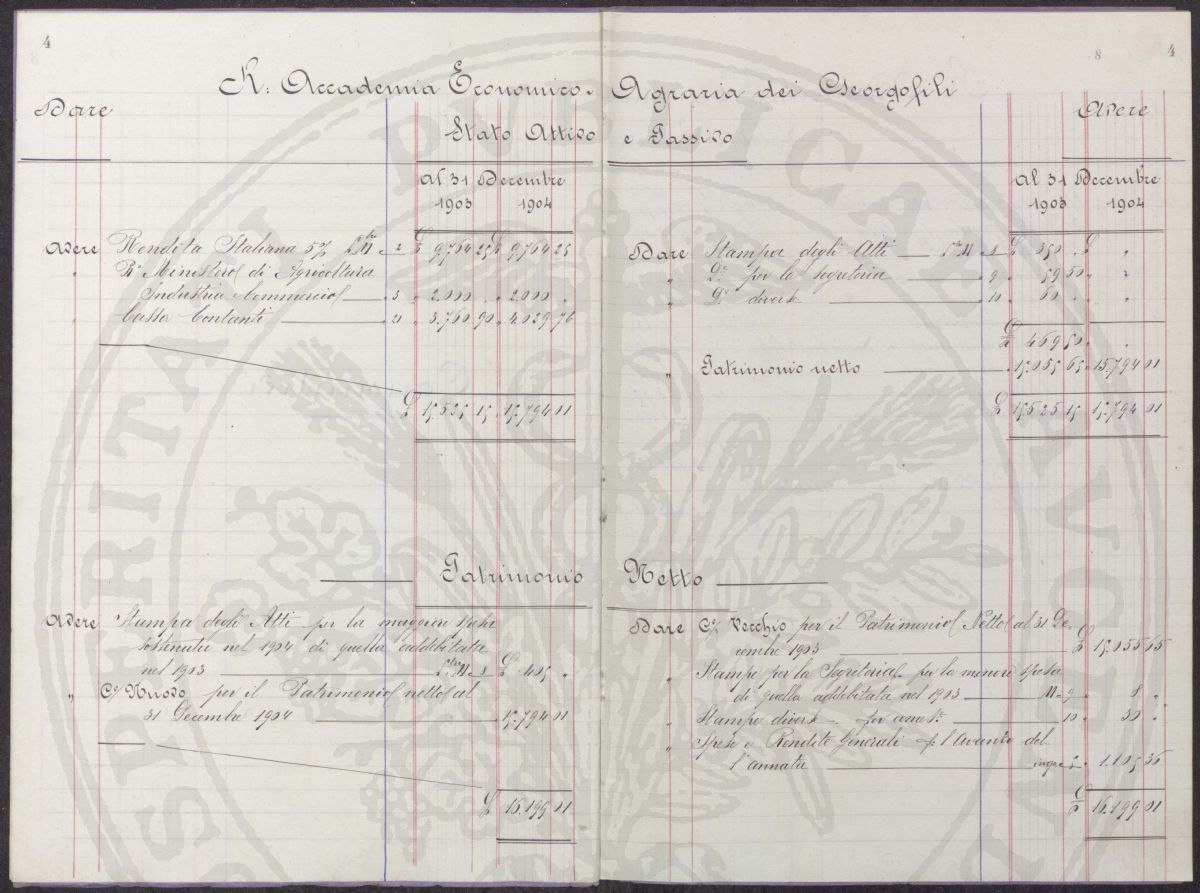 4
8 4
R. Accademia Economico-Agraria dei Georgofili
Dare
Avere
Stato Attivo e Passivo
Al 31 Decembre
1903 1904
Avere Rendita Italiana 5% L.tro M 2 £ 9,764 25 £ 9,764 25
" R.° Ministero di Agricoltura
Industria Commercio 3 " 2.000 " " 2.000 "
" Cassa Contanti 21 " 3.760 90 " 4.029 76
£ 15.525 15 " 15.794 01
Al 31 Decembre
1903 1904
Dare Stampa degli Atti L.tro M 8 £ 350 " £ "
" D.° per la segreteria 9 " 59 50 " "
" D.° diverse 10 " 60 " "
£ 469 50 " "
" Patrimonio netto " 15.055 65 " 15.794 01
£ 15.525 15 " 15.794 01
Patrimonio Netto
Avere Stampa degli Atti per la maggiore spesa
sostenuta nel 1904 di quella addebitata
nel 1903 L.tro M 8 £ 405 "
" C/ Nuovo per il Patrimonio netto al
31 Decembre 1904 " 15.794 01
£ 16.199 01
Dare C/ Vecchio per il Patrimonio Netto al 31 De-
cembre 1903 £ 15.055 65
" Stampe per la Segreteria per la minore spesa
di quella addebitata nel 1903 M 9 " 8 "
" Stampe diverse per come s.a 10 " 30 "
" Spese e Rendite Generali p. l'Avanzo del
l'annata " 1.105 36
£ 16.199 01
SPERITATI PVBLICAE AVGE